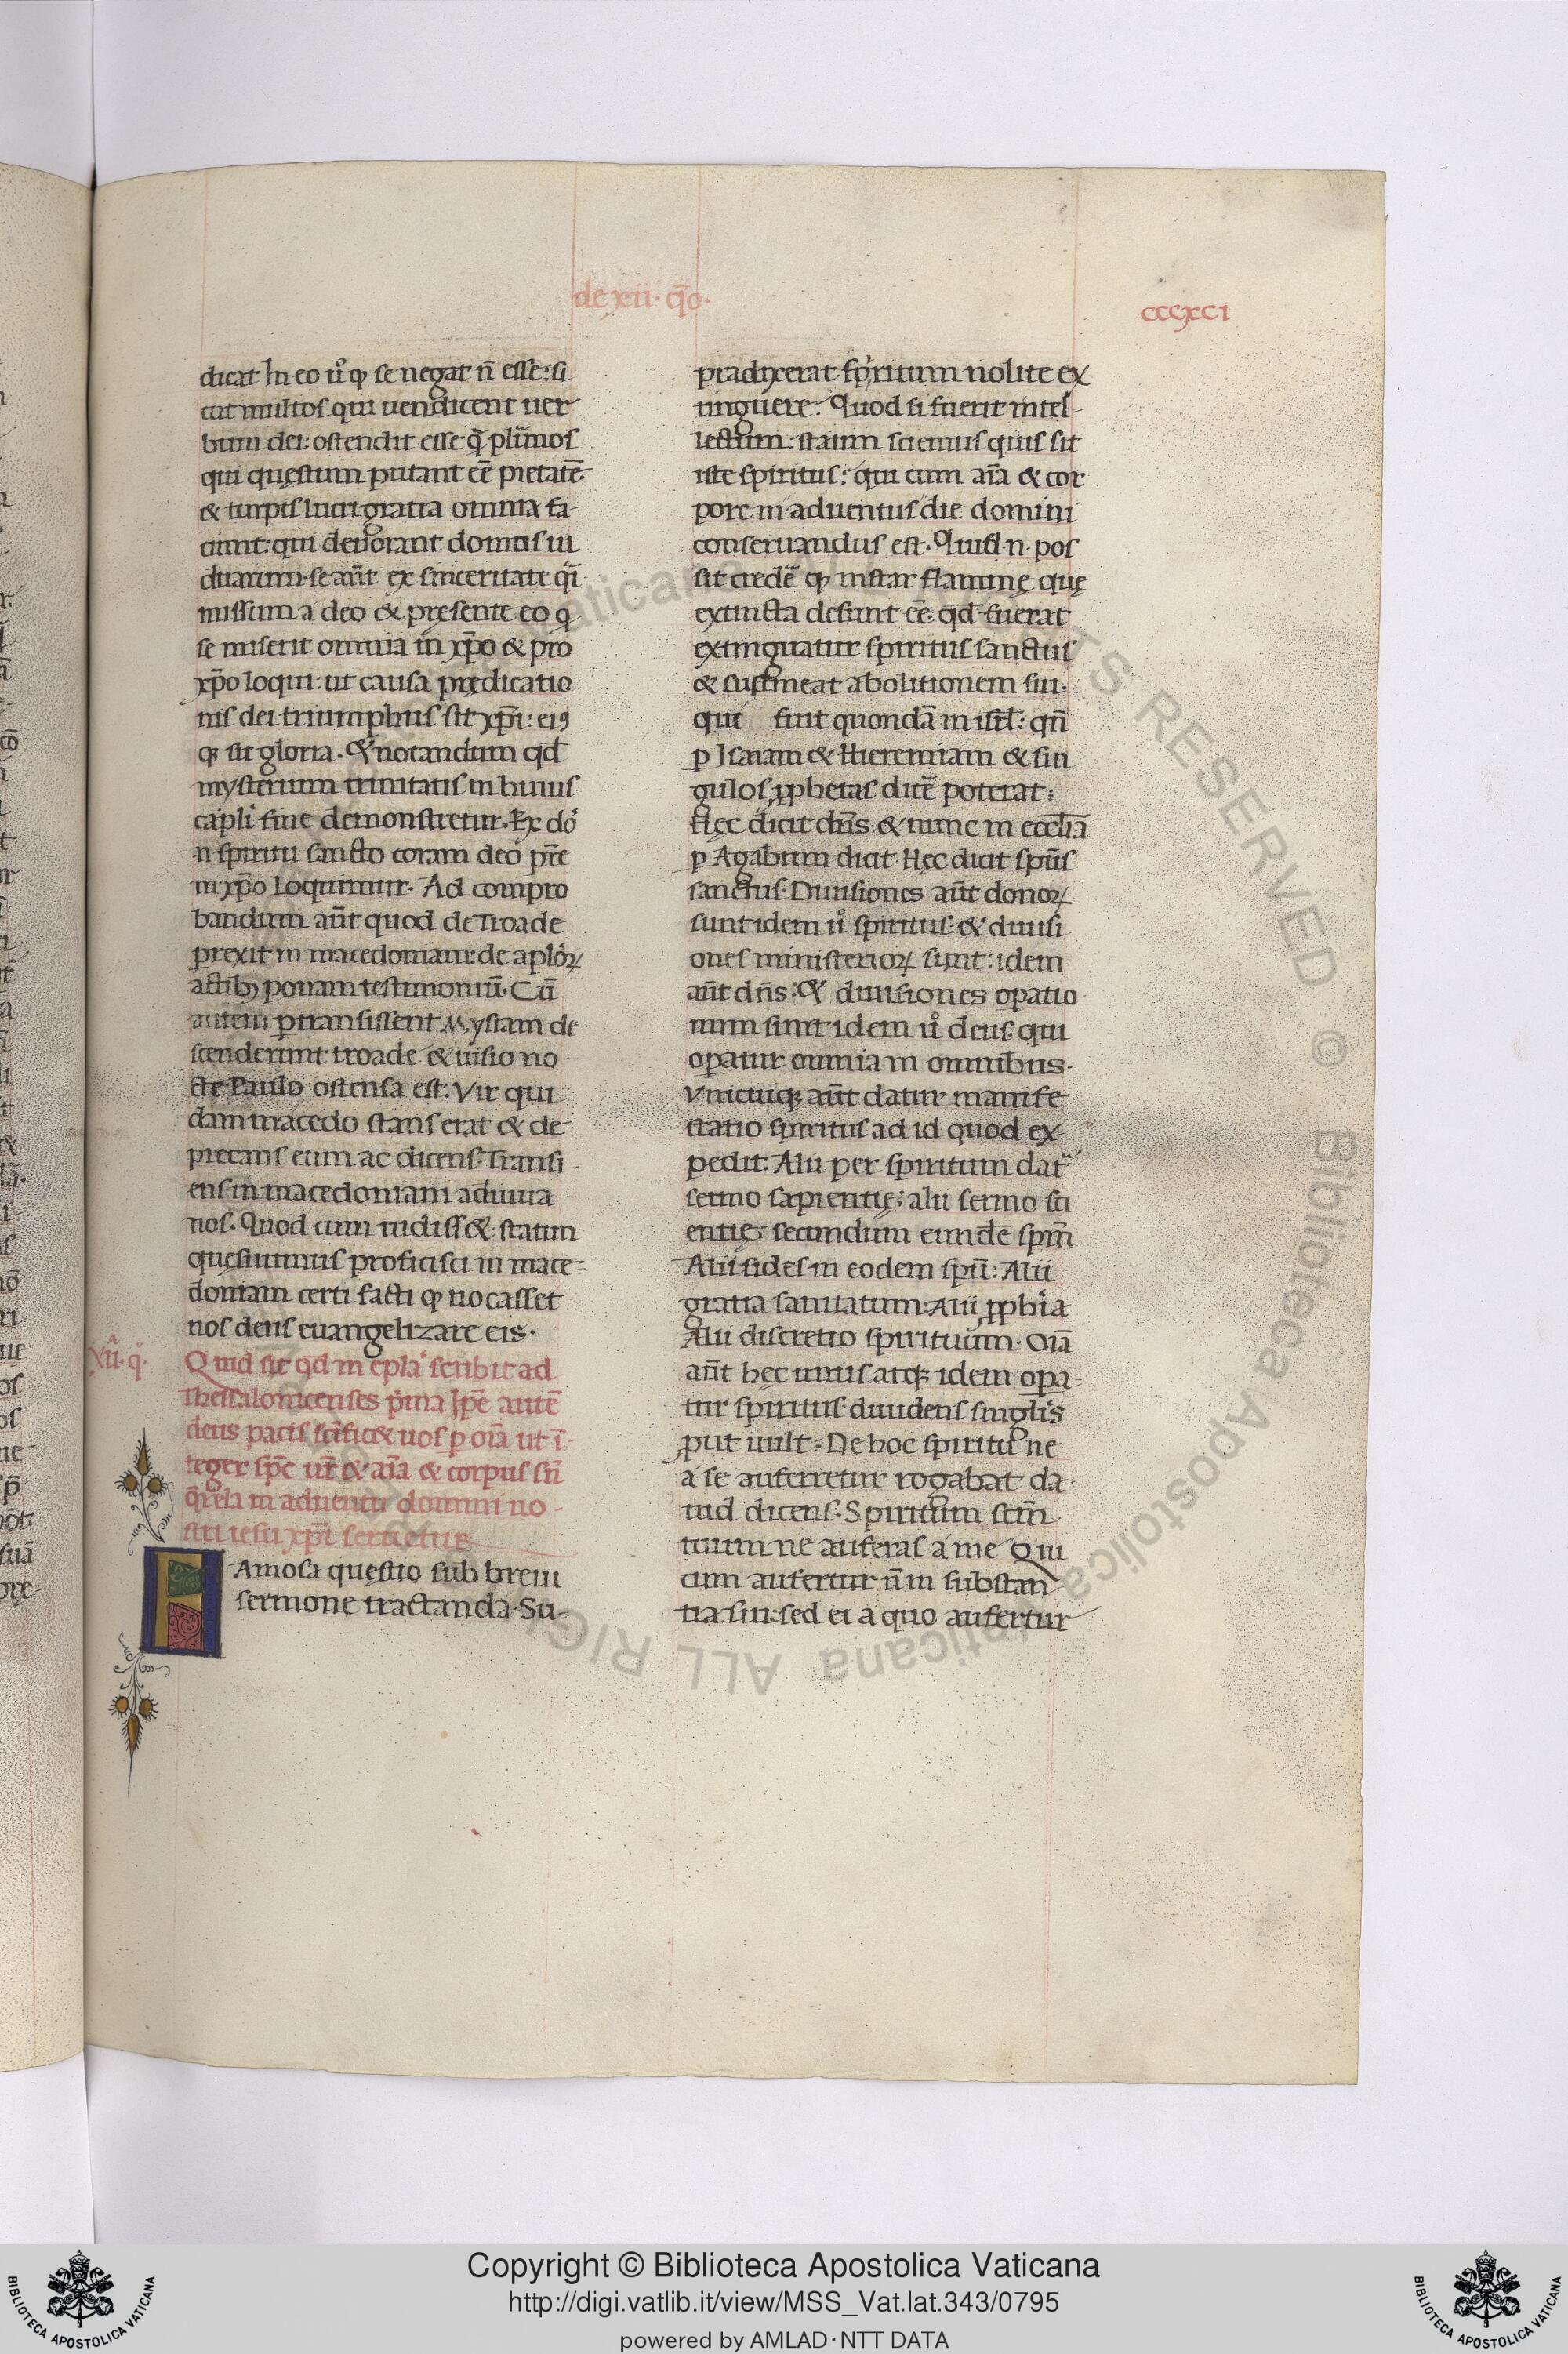 de xii· q̄o·
cccxci
dicat In eo u͛o ꝙ se negat n̄ esse: si
cut multos qui uendicent uer
bum dei: ostendit esse q̄ plurimos
qui quęstum putant eē pietatē·
& turpis lucri gratia omnia fa
ciunt: qui deuorant domus ui
duarum· se aūt ex sinceritate q̄i
missum a deo & pręsente eo q
se miserit omnia in xp̄o & pro
xp̄o loqui: ut causa prędicatio
nis dei triumphus sit xp̄i: eiꝯ
qꝫ sit gloria· & notandum qd̄
mysterium trinitatis in huius
capli fine demonstretur· Ex dō
·n· spiritu sancto coram deo pr̄e
in xp̄o Loquimur· Ad compro
bandum aūt quod de Troade
prexit in macedoniam: de aploꝝ
actibꝫ ponam testimoniū· Cū
autem ꝑtransissent Mysiam de
scenderunt troade & uisio no
cte Paulo ostensa est· Vir qui
dam macedo stans erat & de
precans eum ac dicens· Transi
ens in macedoniam adiuua
nos· Quod cum uidiss&: statim
quęsiuimus proficisci in mace-
doniam certi facti ꝙ uocasset
nos deus euangelizare eis·
Xii· q̊·
Quid sit qd̄ in epla scribit ad
Thessalonicenses prima Ip̄e autē
deus pacis sc̄ific& uos ꝑ oīa ut ī-
teger sp̄c ur̄ & aīa & corpus sn̄
q̄rela in aduentu domini no-
stri iesu xp̄i seruetur
FAmosa quęstio sub breui
sermone tractanda· Su-
pradixerat spiritum nolite ex
tinguere· Quod si fuerit intel-
lectum: statim sciemus quis sit
iste spiritus: qui cum aīa & cor
pore in aduentus die domini
conseruandus est· Quis ·n· pos
sit credē ꝙ instar flammę quę
extincta desinit eē qd̄ fuerat
extinguatur spiritus sanctus
& sustineat abolitionem sui·
qui fuit quondā in isrl̄: qn̄
ꝑ Isaiam & Hieremiam & sin
gulos ꝓphetas dicē poterat:
Hęc dicit dn̄s: & nunc in eccl̄ia
ꝑ Agabum dicit· Hęc dicit sp̄us
sanctus· Diuisiones aūt donoꝝ
sunt idem u͛o spiritus: & diuisi
ones ministerioꝝ sunt: idem
aūt dn̄s: & diuisiones oꝑatio
num sunt idem u͛o deus· qui
oꝑatur omnia in omnibus·
Vnicuiqꝫ aūt datur manife
statio spiritus ad id quod ex
pedit: Alii per spiritum dat͛
sermo sapientię: alii sermo sci
entię· secundum eundē spm̄
Alii fides in eodem spū: Alii
gratia sanitatum: Alii ꝓphīa
Alii discretio spirituum· Oīa
aūt hęc unus atqꝫ idem oꝑa-
tur spiritus· diuidens singlis
ꝓut uult: De hoc spiritu ne
a se auferretur rogabat da
uid dicens· Spiritum scm̄
tuum ne auferas a me Qui
cum aufertur n̄ in substan
tia sui: sed ei a quo aufertur
Copyright © Biblioteca Apostolica Vaticana
http://digi.vatlib.it/view/MSS_Vat.lat.343/0795
powered by AMLAD·NTT DATA